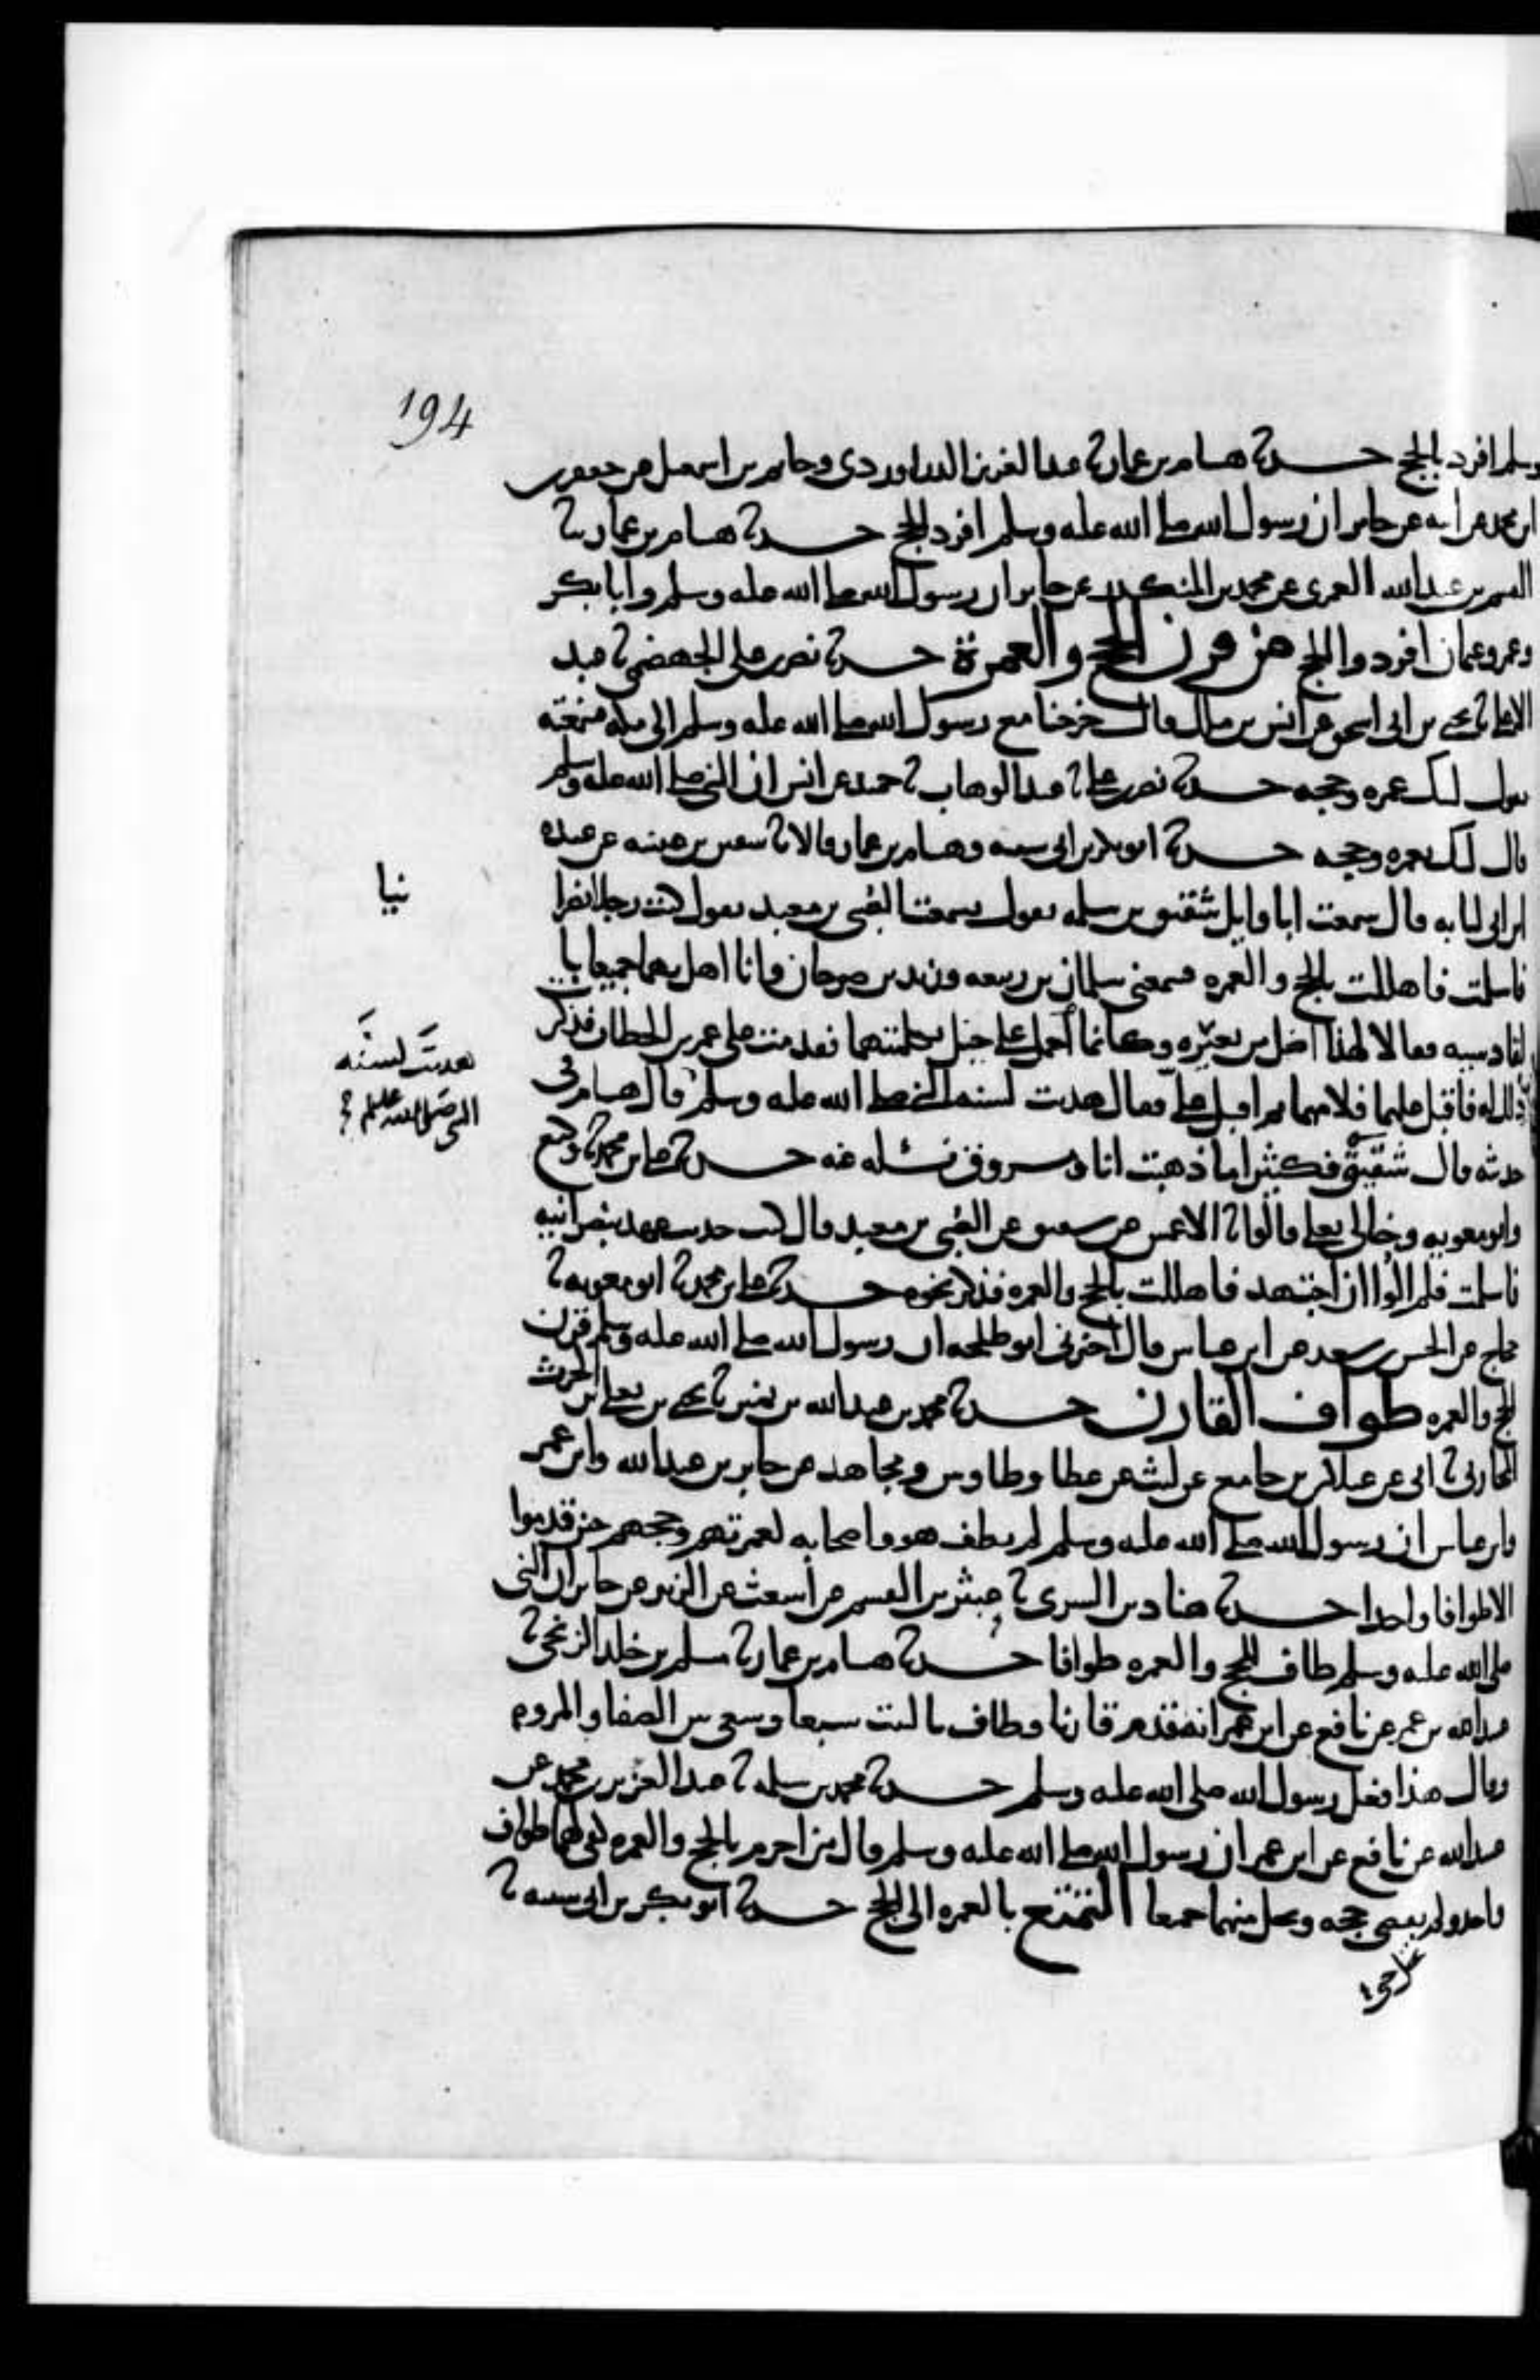 194
وسلم افرد بالحج حدثنا هشام بن عمار ثنا عبد العزيز الدراوردي وحاتم بن اسمعيل عن جعفر بن
ابن محمد عن ابيه عن جابر ان رسول الله صلى الله عليه وسلم افرد الحج حدثنا هشام بن عمار ثنا
القسم بن عبد الله العمري عن محمد بن المنكدر عن جابر ان رسول الله صلى الله عليه وسلم وابا بكر
وعمر وعثمان افردوا الحج من قرن الحج والعمرة حدثنا نصر بن علي الجهضمي ثنا عبد
الاعلى ثنا يحيى بن ابي اسحق عن انس بن مالك قال خرجنا مع رسول الله صلى الله عليه وسلم الى مكة فسمعته
يقول لبيك عمره وحجه حدثنا نصر بن علي ثنا عبد الوهاب ثنا حميد عن انس ان النبي صلى الله عليه وسلم
قال لبيك بعمره وحجه حدثنا ابو بكر بن ابي شيبه وهشام بن عمار قالا ثنا سفين بن عيينه عن عبده
ابن ابي لبابه قال سمعت ابا وايل شقيق بن سلمه يقول سمعت الصبي بن معبد يقول كنت رجلا نصرا
نيا
فاسلمت فاهللت بالحج والعمره فسمعني سلمان بن ربيعه وزيد بن صوحان وانا اهل بهما جميعا با
لقادسيه فقالا لهذا اضل من بعيره وكانما احمل على جبل بكلمتهما فقدمت على عمر بن الخطاب فذكرت
ذلك له فاقبل عليهما فلامهما ثم اقبل علي فقال هديت لسنه النبي صلى الله عليه وسلم قال هشام في
هديت لسنه
النبي صلى الله عليه وسلم
حديثه قال شقيق فكثيرا ما ذهبت انا ومسروق نسئله عنه حدثنا علي بن محمد ثنا وكيع
وابو معويه وخالي يعلى قالوا ثنا الاعمش عن شقيق عن الصبي بن معبد قال كنت حديث عهد بنصرانيه
فاسلمت فلم الوا ان اجتهد فاهللت بالحج والعمره فذكر نحوه حدثنا علي بن محمد ثنا ابو معويه ثنا
حجاج عن الحسن بن سعد عن ابن عباس قال اخبرني ابو طلحه ان رسول الله صلى الله عليه وسلم قرن
الحج والعمره طواف القارن حدثنا محمد بن عبد الله بن نمير ثنا يحيى بن يعلى بن الحرث
المحاربي ثنا ابي عن غيلان بن جامع عن ليث عن عطا وطاوس ومجاهد عن جابر بن عبد الله وابن عمر
وابن عباس ان رسول الله صلى الله عليه وسلم لم يطف هو واصحابه لعمرتهم وحجهم حين قدموا
الا طوافا واحدا حدثنا هناد بن السري ثنا عبثر بن القسم عن اشعث عن ابي الزبير عن جابر ان النبي
صلى الله عليه وسلم طاف للحج والعمره طوافا حدثنا هشام بن عمار ثنا مسلم بن خلد الزنجي ثنا
عبيد الله بن عمر عن نافع عن ابن عمر انه قدم قارنا وطاف بالبيت سبعا وسعى بين الصفا والمروه
وقال هذا فعل رسول الله صلى الله عليه وسلم حدثنا محمد بن سلمه ثنا عبد العزيز بن محمد عن
عبيد الله عن نافع عن ابن عمر ان رسول الله صلى الله عليه وسلم قال من احرم بالحج والعمره كفى لهما طواف
واحد ولم يقضي حجه ويحل منهما جميعا التمتع بالعمره الى الحج حدثنا ابو بكر بن ابي شيبه ثنا